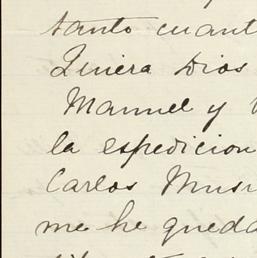 tanto cuant
Quiera Dios
Manuel y
la espedicion
Carlos Musi
me he queda